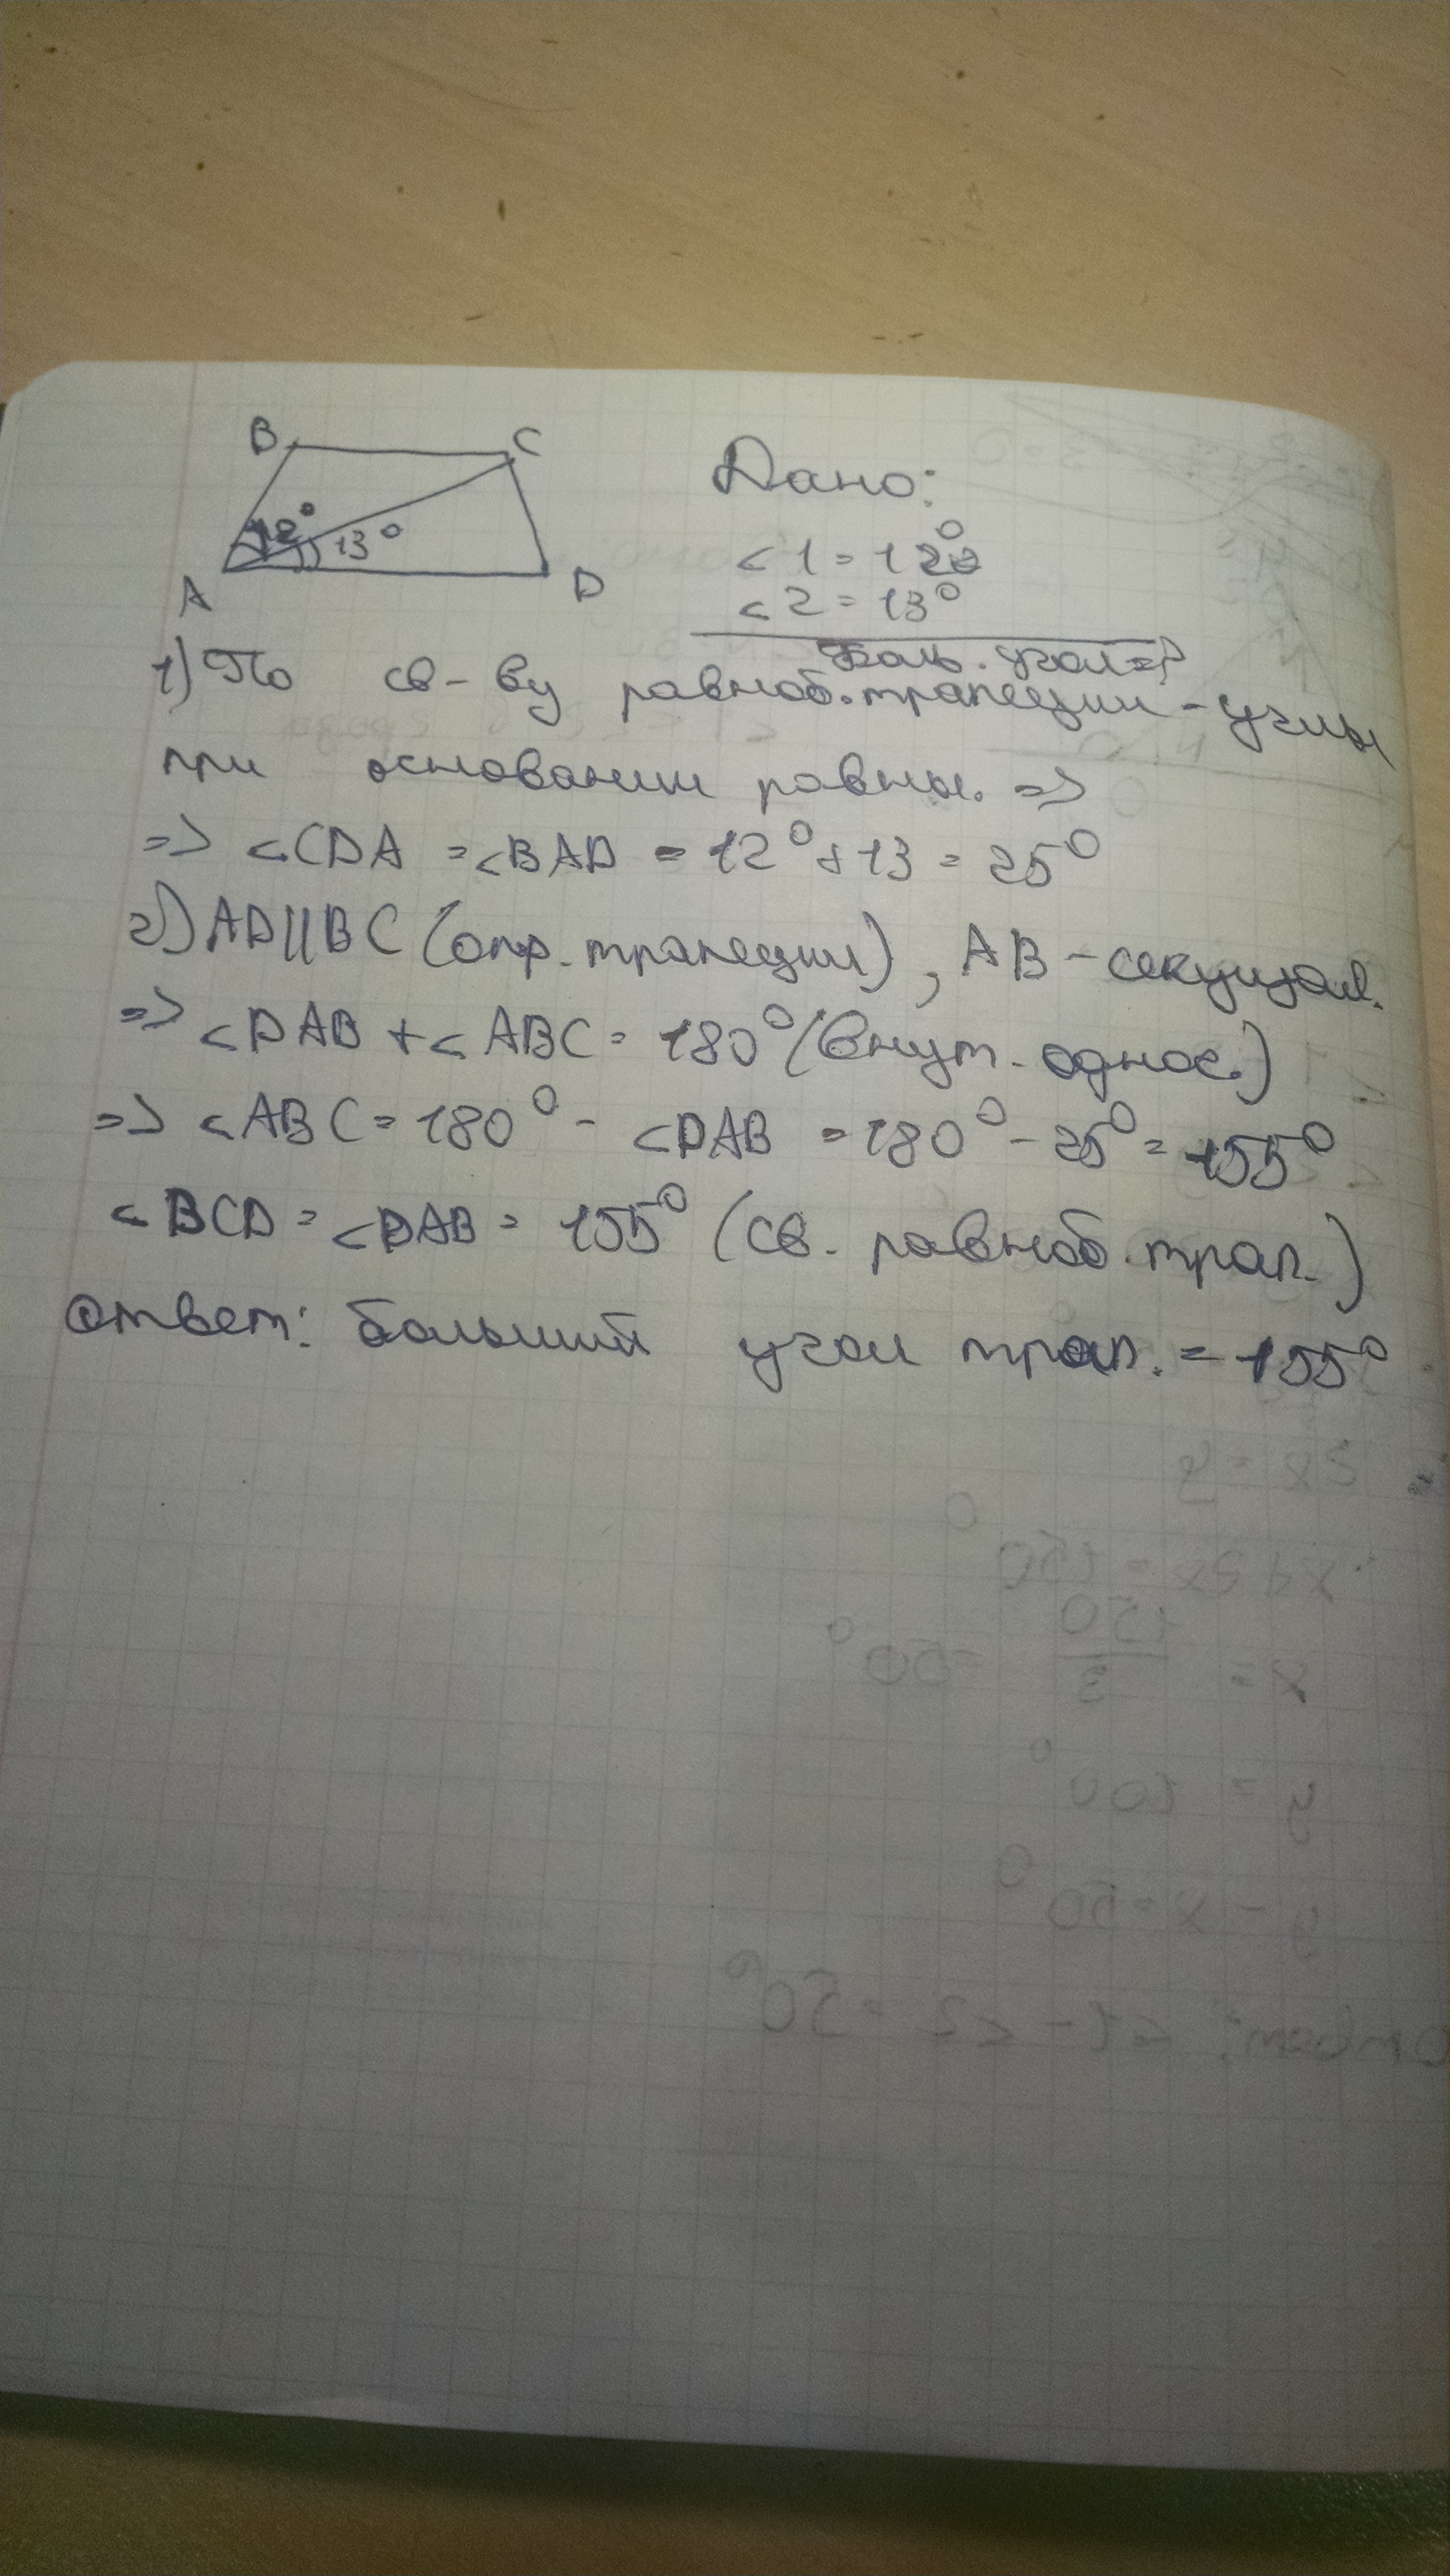 B C
12° 13°
A D
Дано:
<1 = 12°
<2 = 13°
Боль. угол=?
1) По св-ву равноб. трапеции - углы
при основании равны. =>
=> <CDA = <BAD = 12°+13 = 25°
2) AD||BC (опр. трапеции), AB - секущая.
=> <DAB + <ABC = 180° (внут. однос.)
=> <ABC = 180° - <DAB = 180° - 25° = 155°
<BCD = <DAB = 155° (св. равноб. трап.)
Ответ: больший угол трап. = 155°
2x = y
x+2x = 150°
x = 150/3 = 50°
y = 100°
y - x = 50°
Ответ: <1 - <2 = 50°